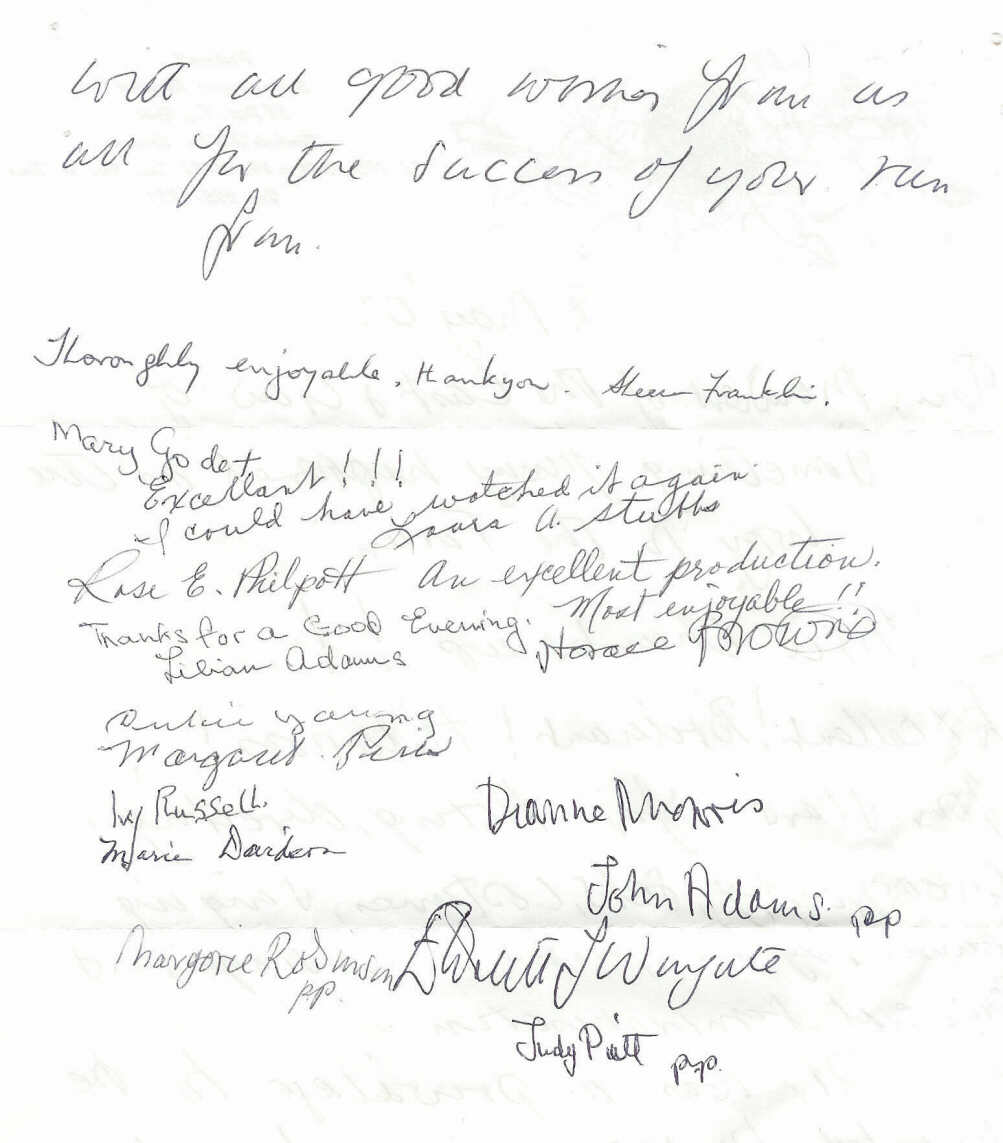 with all good wishes from us
all for the success of your run
Fran.
Thoroghly enjoyable, thankyou. Franklin.
Mary Godet
Excellant!!!
I could have watched it again
Laura A. Stubbs
Rose E. Philpott An excellent production.
Most enjoyable!!
Thanks for a Good Evening. Horace Brown
Lilian Adams
young
Margaret
Ivy Russell.
Marie
Dianne Morris
John Adams. pp
Margorie Robinson
pp.
Wingate
Judy Piatt pp.